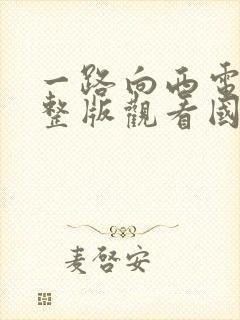 一路向西電
整版觀看國
麦啓安